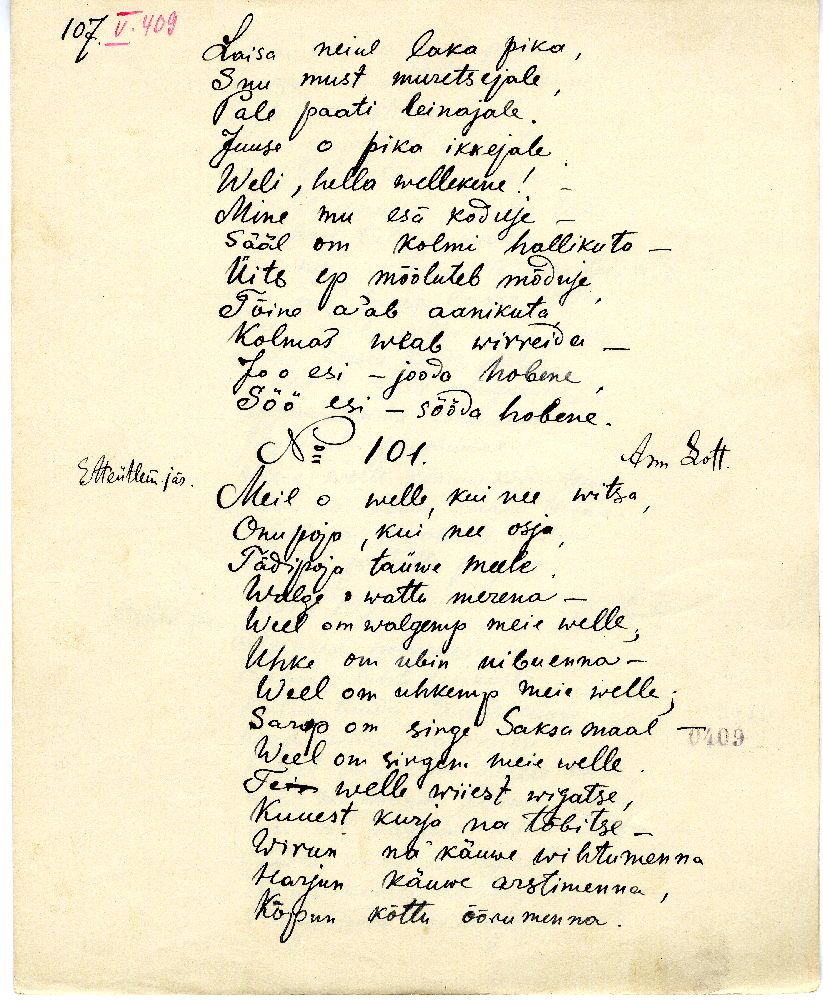 107. V. 409
Laisa neiul laka pika,
Snu must muretsejale,
Pale paati leinajale.
Juuse o pika ikkejale.
Weli, hella wellekene! –
Mine mu esä koduje –
Sääl om kolmi hallikuto –
Üits ep mööluteb mõduje,
Tõine a'ab aanikuta,
Kolmas weab wirreida –
Joo esi – jooda hobene,
Söö esi – sööda hobene.
No 101. Ann Lott.
Etteütlem. jär.
Meil o welle, kui nee witsa,
Onupoja, kui nee osja,
Tädipoja taüwe meele.
Walge o wattu merena –
Weel om walgemp meie welle;
Uhke om ubin nibuenna –
Weel om uhkemp meie welle;
Sarap om singe Saksa maal –
0409
Weel om singem meie welle.
welle wiiest wigatse,
Kuuest kurja na tõbitse –
Wirun na käuwe wihtumenna
Harjun käuwe arstimenna,
Kõpun kõttu õõrumenna.